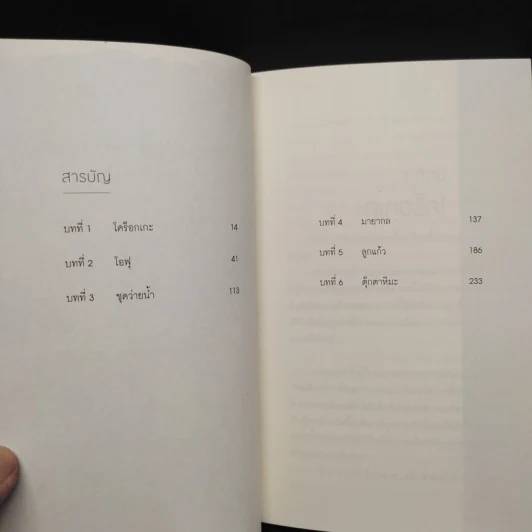 สารบัญ
บทที่ 1 โคร็อกเกะ 14
บทที่ 2 โอฟุ 41
บทที่ 3 ชุดว่ายน้ำ 113
บทที่ 4 มายากล 137
บทที่ 5 ลูกแก้ว 186
บทที่ 6 ตุ๊กตาหิมะ 233